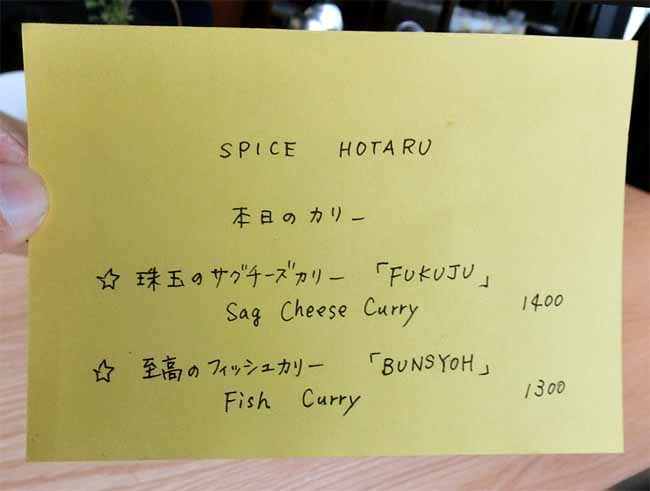 SPICE HOTARU
本日のカリー
☆ 珠玉のサグチーズカリー 「FUKUJU」
Sag Cheese Curry 1400
☆ 至高のフィッシュカリー 「BUNSYOH」
Fish Curry 1300